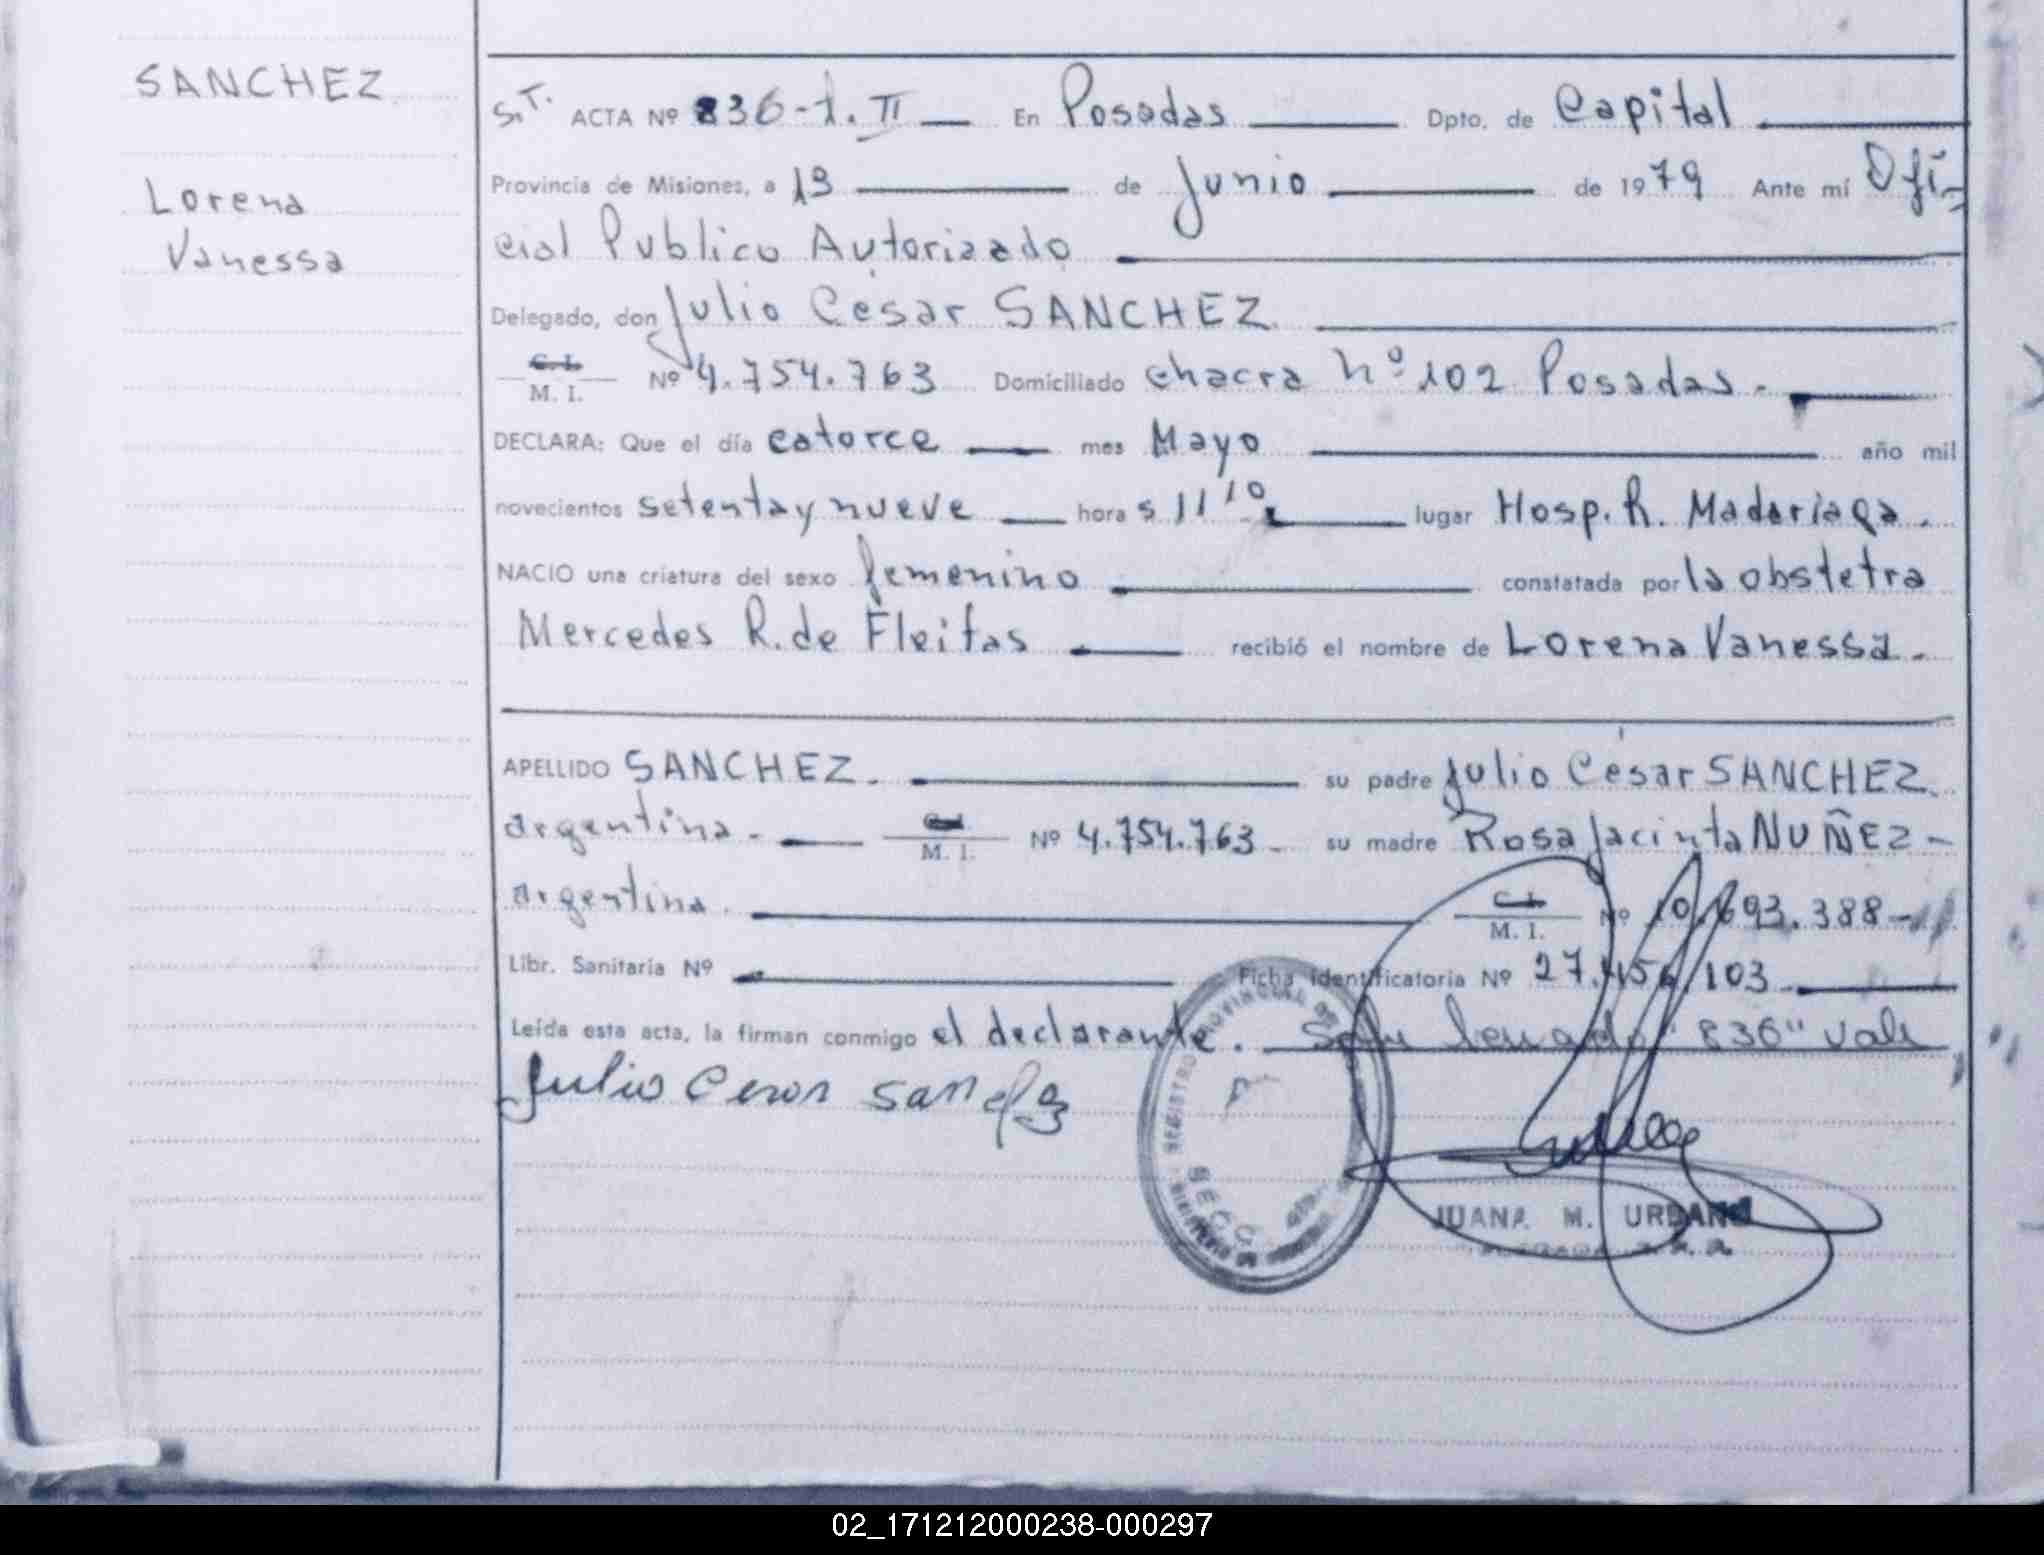 SANCHEZ
Lorena
Vanessa
S.T. ACTA Nº 836-t. II En Posadas Dpto. de Capital
Provincia de Misiones, a 19 de Junio de 1979 Ante mí Ofi-
cial Publico Autorizado
Delegado, don Julio Cesar SANCHEZ
C. I.
M. I. Nº 4.754.763 Domiciliado chacra nº 102 Posadas.
DECLARA: Que el día catorce mes Mayo año mil
novecientos setenta y nueve hora s 11 10 lugar Hosp. R. Madariaga.
NACIO una criatura del sexo femenino constatada por la obstetra
Mercedes R. de Fleitas recibió el nombre de Lorena Vanessa.
APELLIDO SANCHEZ. su padre Julio Cesar SANCHEZ.
argentina. C. I. M. I. Nº 4.754.763 su madre Rosa Jacinta NUÑEZ
argentina. C. I. M. I. Nº 10.693.388
Libr. Sanitaria Nº Ficha identificatoria Nº 27.456.103
Leída esta acta, la firman conmigo el declarante. "836" vale
Julio Cesar Sanchez
REGISTRO PROVINCIAL DE
SECC
JUANA M. URBANO
02_171212000238-000297